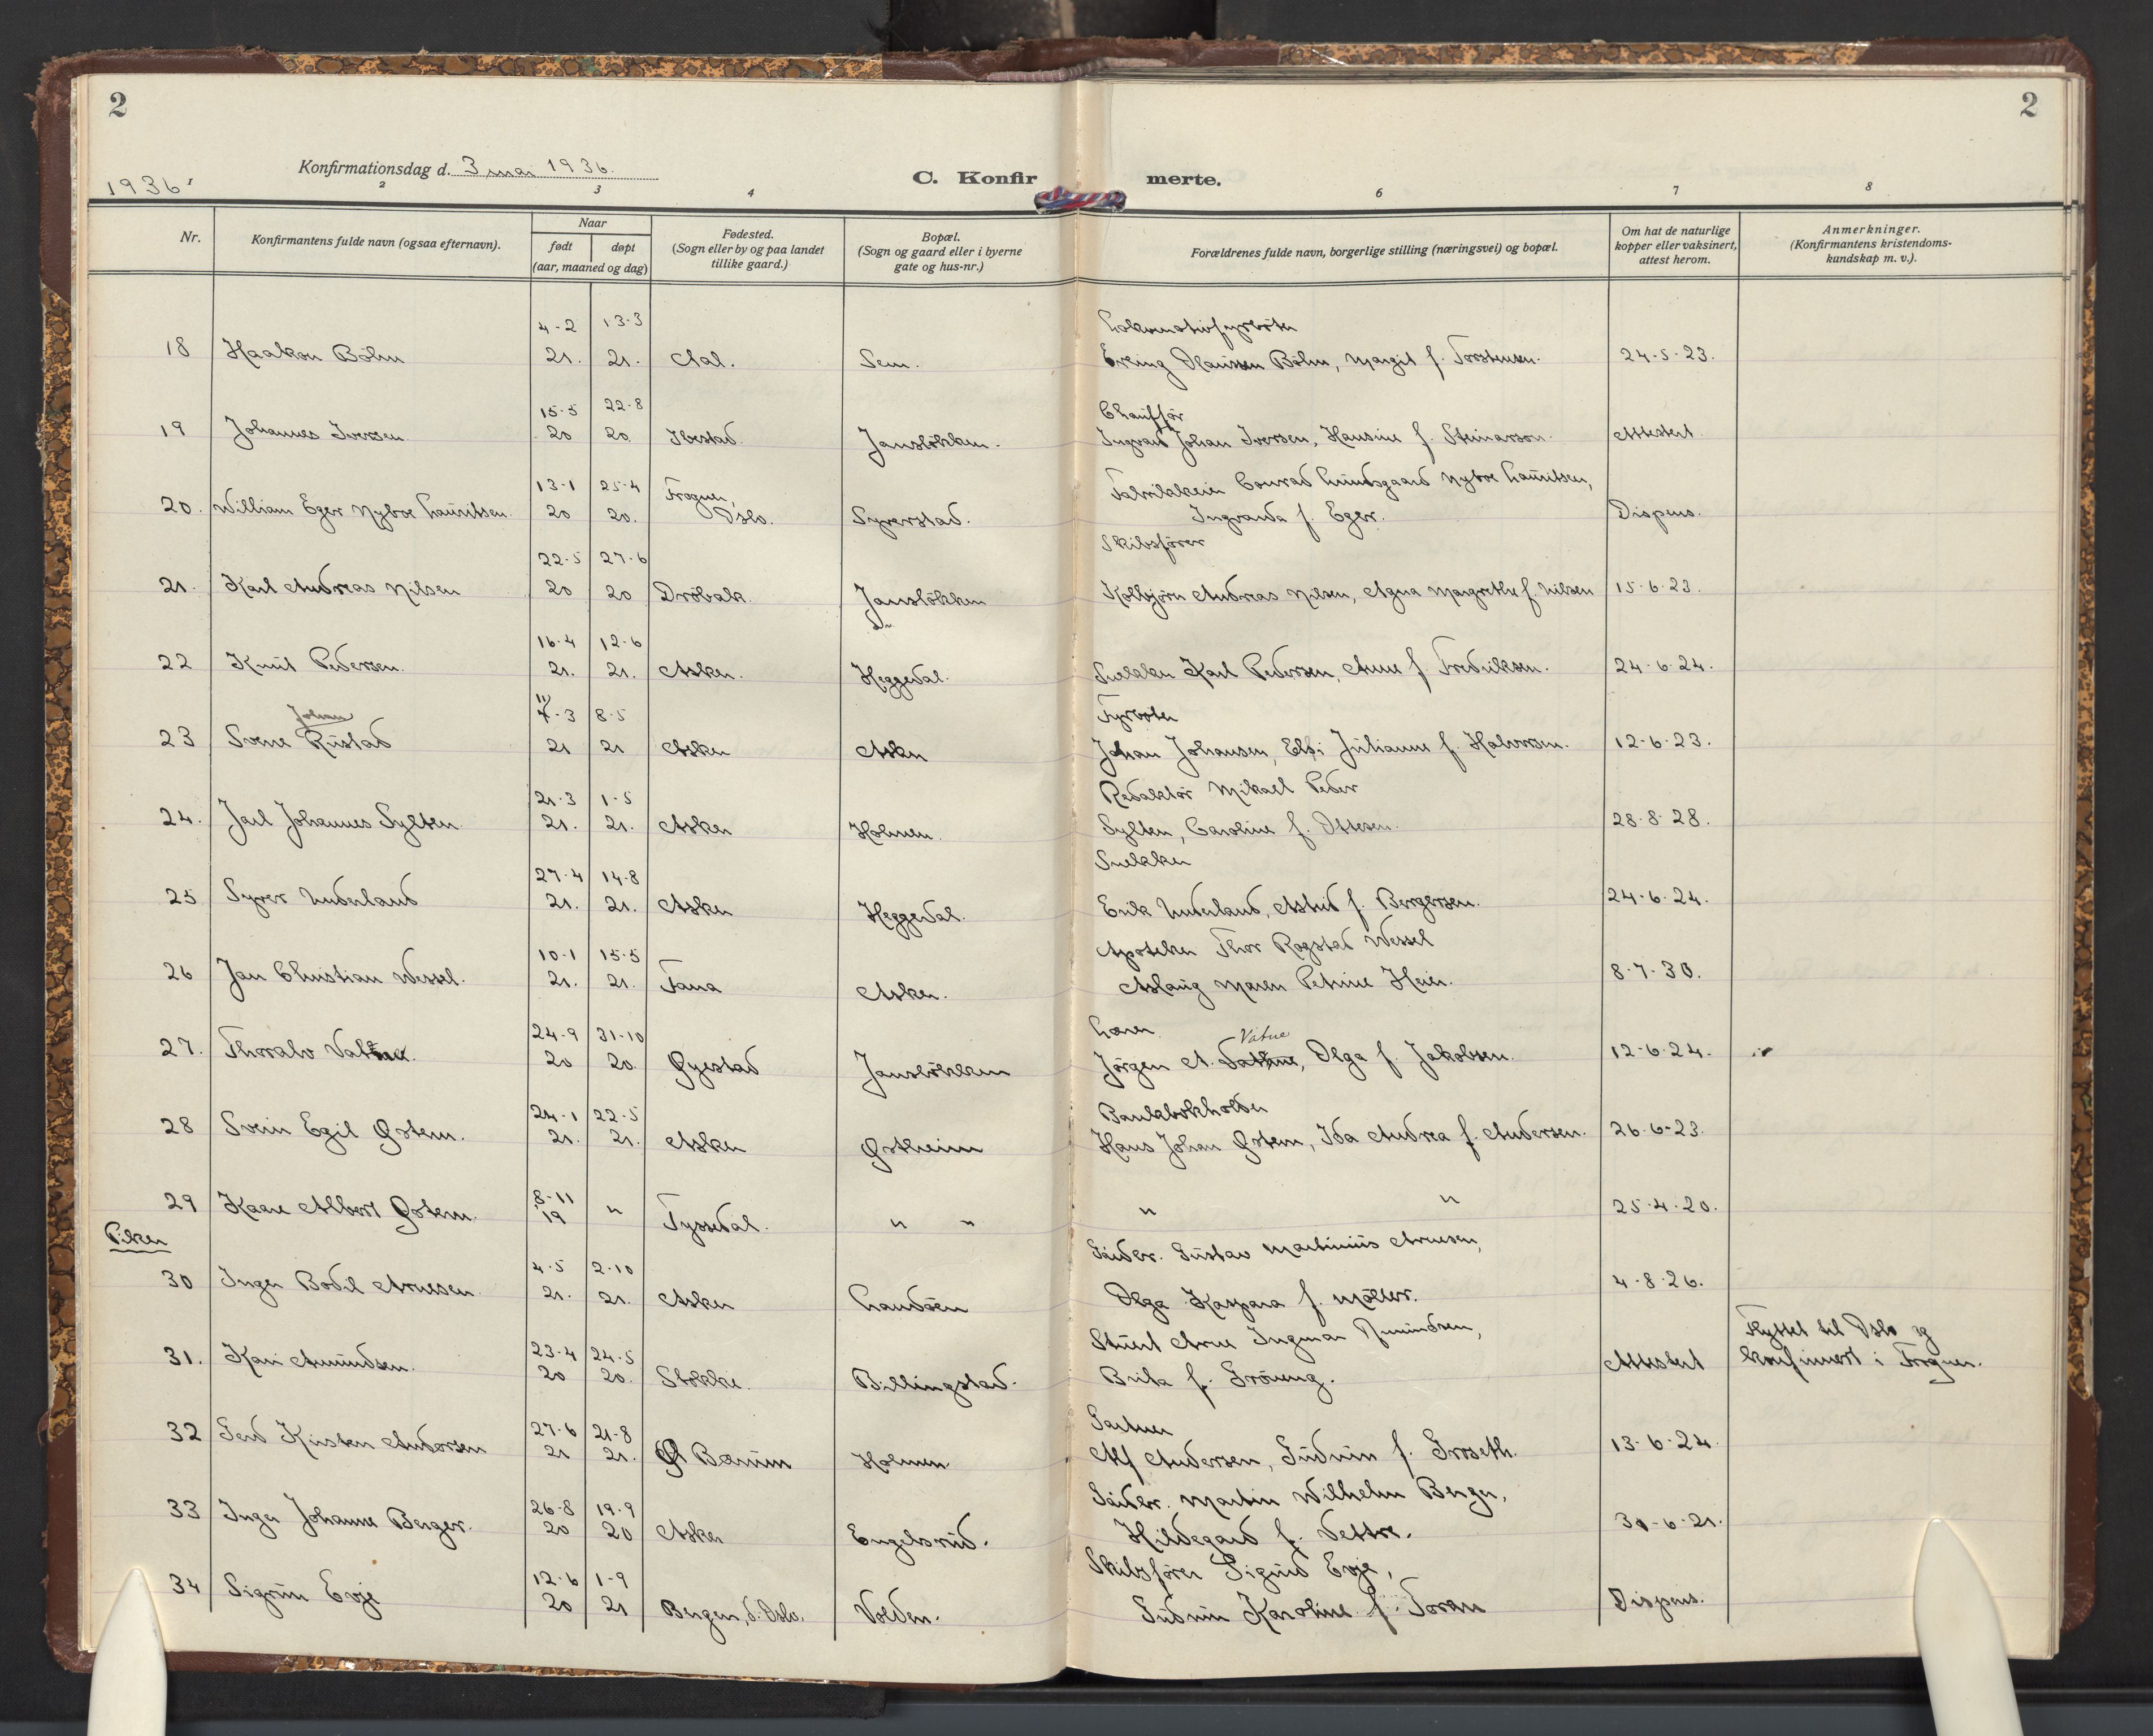 2
2
Konfirmationsdag d. 3 mai 1936.
1936
C. Konfirmerte.
2 3 4 6 7 8
Nr.
Konfirmantens fulde navn (ogsaa efternavn).
Naar
født døpt
(aar, maaned og dag)
Fødested.
(Sogn eller by og paa landet
tillike gaard.)
Bopæl.
(Sogn og gaard eller i byerne
gate og hus-nr.)
Forældrenes fulde navn, borgerlige stilling (næringsvei) og bopæl.
Om hat de naturlige
kopper eller vaksinert,
attest herom.
Anmerkninger.
(Konfirmantens kristendoms-
kundskap m. v.).
4-2 13-3 Lokomotivfyrbøter
18 Haakon Böhn 21. 21. Aal. Sem. Erling Hansen Böhn, Margit f. Torstensen. 24-5-23.
15-5 22-8 Chauffør
19 Johannes Iversen 20 20 Ibestad. Jansløkken. Ingvard Johan Iversen, Hansine f. Steinarson. Attestert
13-1 25-4 Frogner, Fabrikkeier Conrad Lundsgaard Nyboe Lauritsen,
20. William Eger Nyboe Lauritsen. 20 20. Oslo. Syverstad. Ingvarda f. Eger. Dispens.
22-5 27-6 Skibsfører
21. Karl Andreas Nilsen 20 20 Drøbak. Jansløkken Kolbjørn Andreas Nilsen, Agna Margrethe f. Nilsen 15-6-23.
16-4 12-6
22 Knut Pedersen. 21. 21. Asker. Heggedal. Snekker Karl Pedersen, Anne f. Fredriksen. 24-6-24.
Johan 11 4-3 8-5 Fyrbøter
23 Sverre Rustad 21 21 Asker Asker Johan Johansen, Elsi Julianne f. Halvorsen. 12-6-23.
21-3 1-5 Redaktør Mikael Peder
24. Jarl Johannes Sylten 21. 21. Asker Holmen. Sylten, Caroline f. Ottesen. 28-8-28.
27-4 14-8 Snekker
25 Syver Underland 21. 21. Asker Heggedal. Erik Underland, Astrid f. Bergersen. 24-6-24.
10-1 15-5 Apoteker Thor Rogstad Wessel
26 Jan Christian Wessel. 21. 21. Fana Asker. Aslaug Maren Petrine Heier. 8-7-30.
24-9 31-10 Lærer Vatne
27. Thoralv Vatne. 20 20 Øyestad Jansløkken Jørgen A. Vatne, Olga f. Jakobsen. 12-6-24.
24-1 22-5 Bankbokholder
28 Svein Egil Østem. 21. 21. Asker Østheim Hans Johan Østem, Ida Andrea f. Andersen. 26-6-23.
8-11
29 Kaare Albert Østem. 19 " Tyssedal. " " " " 25-4-20.
Piker
4-5 2-10 Gårdbr. Gustav Martinius Arnesen,
30 Inger Bodil Arnesen 21. 21. Asker Landøen Olga Kaspara f. Møller. 4-8-26.
23-4 24-5 Stuert Arne Ingmar Amundsen, Flyttet til Oslo og
31. Kari Amundsen. 20 20. Stokke. Billingstad. Brita f. Grøueng. Attestert konfirmert i Frogner.
27-6 21-8 Gartner
32 Gerd Kirsten Andersen 21 21. Ø Bærum Holmen Alf Andersen, Gudrun f. Groseth. 13-6-24.
26-8 19-9 Gårdbr. Martin Wilhelm Berger,
33 Inger Johanne Berger. 20 20 Asker Engelsrud. Hildegard f. Vettre. 30-6-21.
12-6 1-9 Skibsfører Sigurd Evje,
34 Sigrun Evje 20 21 Bergen, d. Oslo. Volden. Gudrun Karoline f. Foran Dispens.